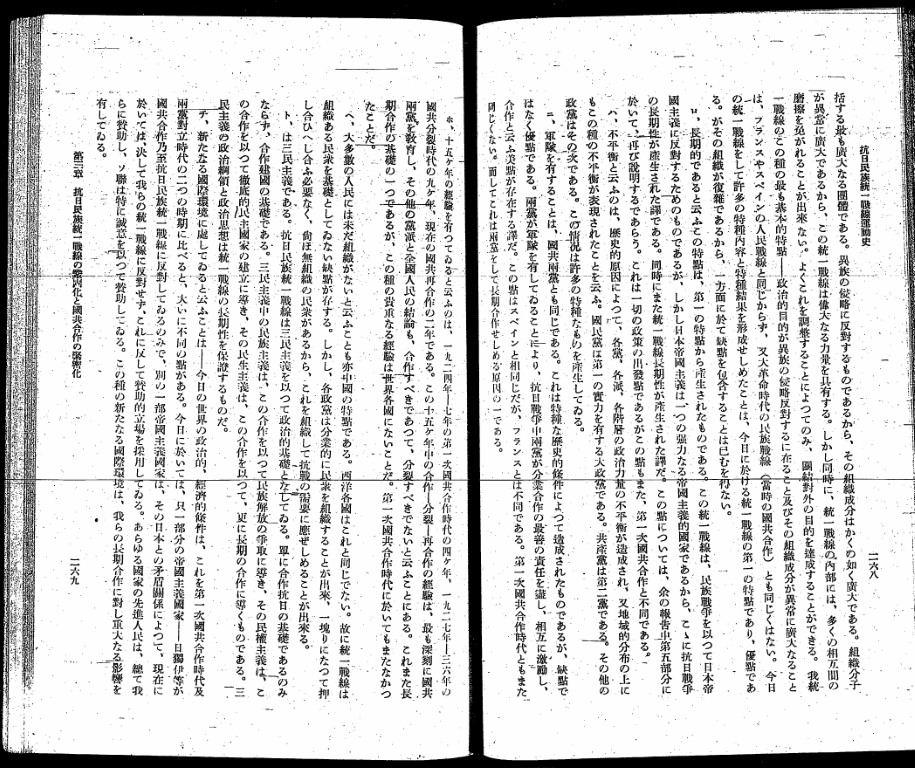 抗日民族統一戰線運動史
二六八
括する最も廣大なる團體である。異族の侵略に反對するものであるから、その組織成分はかくの如く廣大である。組織分子
が異常に廣大であるから、この統一戰線は偉大なる力量を具有する。しかし同時に、統一戰線の內部には、多くの相互間の
磨擦を免がれることが出來ない。よくこれを調整することによつてのみ、團結對外の目的を達成することができる。我統
一戰線のこの種の最も基本的特點——政治的目的が異族の侵略反對するに在ること及びその組織成分が異常に廣大なること
は、フランスやスペインの人民戰線と同じからず、又大革命時代の民族戰線(當時の國共合作)とも同じくはない。今日
の統一戰線をして許多の特種內容と特種結果を形成せしめたことは、今日に於ける統一戰線の第一の特點であり、優點であ
る。がその組織が復雜であるから、一方面に於て缺點を包含することは已むを得ない。
ロ、長期的であると云ふこの特點は、第一の特點から產生されたものである。この統一戰線は、民族戰爭を以つて日本帝
國主義に反對するためのものであるが、しかし日本帝國主義は一つの强力なる帝國主義的國家であるから、こゝに抗日戰爭
の長期性が產生された譯である。同時にまた統一戰線長期性が產生された譯だ。この點については、余の報告中第五部分に
於いて、再び說明するであらう。これは一切の政策の出發點であるがこの點もまた、第一次國共合作と不同である。
ハ、不平衡と云ふのは、歷史的原因によつて、各黨、各派、各階層の政治力量の不平衡が造成され、又地域的分布の上に
もこの種の不平衡が表現されたことを云ふ。國民黨は第一の實力を有する大政黨である。共產黨は第二黨である。その他の
政黨はその次である。この情況は許多の特種なものを產生してゐる。
ニ、軍隊を有することは、國共兩黨とも同じである。これは特種な歷史的條件によつて造成されたものであるが、缺點で
はなく優點である。兩黨が軍隊を有してゐることにより、抗日戰爭中兩黨が分業合作の最善の責任を盡し、相互に激勵し、
合作と云ふ美點が存在する譯だ。この點はスペインと相同じだが、フランスとは不同である。第一次國共合作時代ともまた
同じくない。而してこれは兩黨をして長期合作せしめる原因の一である。
ホ、十五ケ年の經驗を有つてゐると云ふのは、一九二四年—七年の第一次國共合作時代の四ケ年、一九二七年—三六年の
國共分裂時代の九ケ年、現在の國共再合作の二年である。この十五ケ年中の合作—分裂—再合作の經驗は、最も深刻に國共
兩黨を敎育し、その他の黨派と全國人民の結論も、合作すべきであつて、分裂すべきでないと云ふことにある。これまた長
期合作の基礎の一つであるが、この種の貴重なる經驗は世界各國にないことだ。第一次國共合作時代に於いてもまたなかつ
たことだ。
ヘ、大多數の人民には未だ組織がないと云ふことも亦中國の特點である。西洋各國はこれと同じでない。故に統一戰線は
組織ある民衆を基礎としてゐない缺點が存する。しかし、各政黨は分業的に民衆を組織することが出來、一塊りになつて押
し合ひへし合ふ必要なく、尙ほ無組織の民衆があるから、これを組織して抗戰の需要に應ぜしめることが出來る。
ト、は三民主義である。抗日民族統一戰線は三民主義を以つて政治的基礎となしてゐる。單に合作抗日の基礎であるのみ
ならず、合作建國の基礎である。三民主義中の民族主義は、この合作を以つて民族解放の爭取に導き、その民權主義は、こ
の合作を以つて徹底的民主國家の建立に導き、その民生主義は、この合作を以つて、更に長期の合作に導くものである。三
民主義の政治綱領と政治思想は統一戰線の長期性を保證するものだ。
チ、新たなる國際環境に處してゐると云ふことは——今日の世界の政治的、經濟的條件は、これを第一次國共合作時代及
兩黨對立時代の二つの時期に比べると、大いに不同の點がある。今日に於いては、只一部分の帝國主義國家——日獨伊等が
國共合作乃至抗日民族統一戰線に反對してゐるのみで、別の一部帝國主義國家は、その日本との矛盾關係によつて、現在に
於いては、決して我らの統一戰線に反對せず、これに反して贊助的立場を採用してゐる。あらゆる國家の先進人民は、總て我
らに贊助し、ソ聯は特に誠意を以つて贊助してゐる。この種の新たなる國際環境は、我らの長期合作に對し重大なる影響を
有してゐる。
第三章 抗日民族統一戰線の鞏固化と國共合作の緊密化
二六九